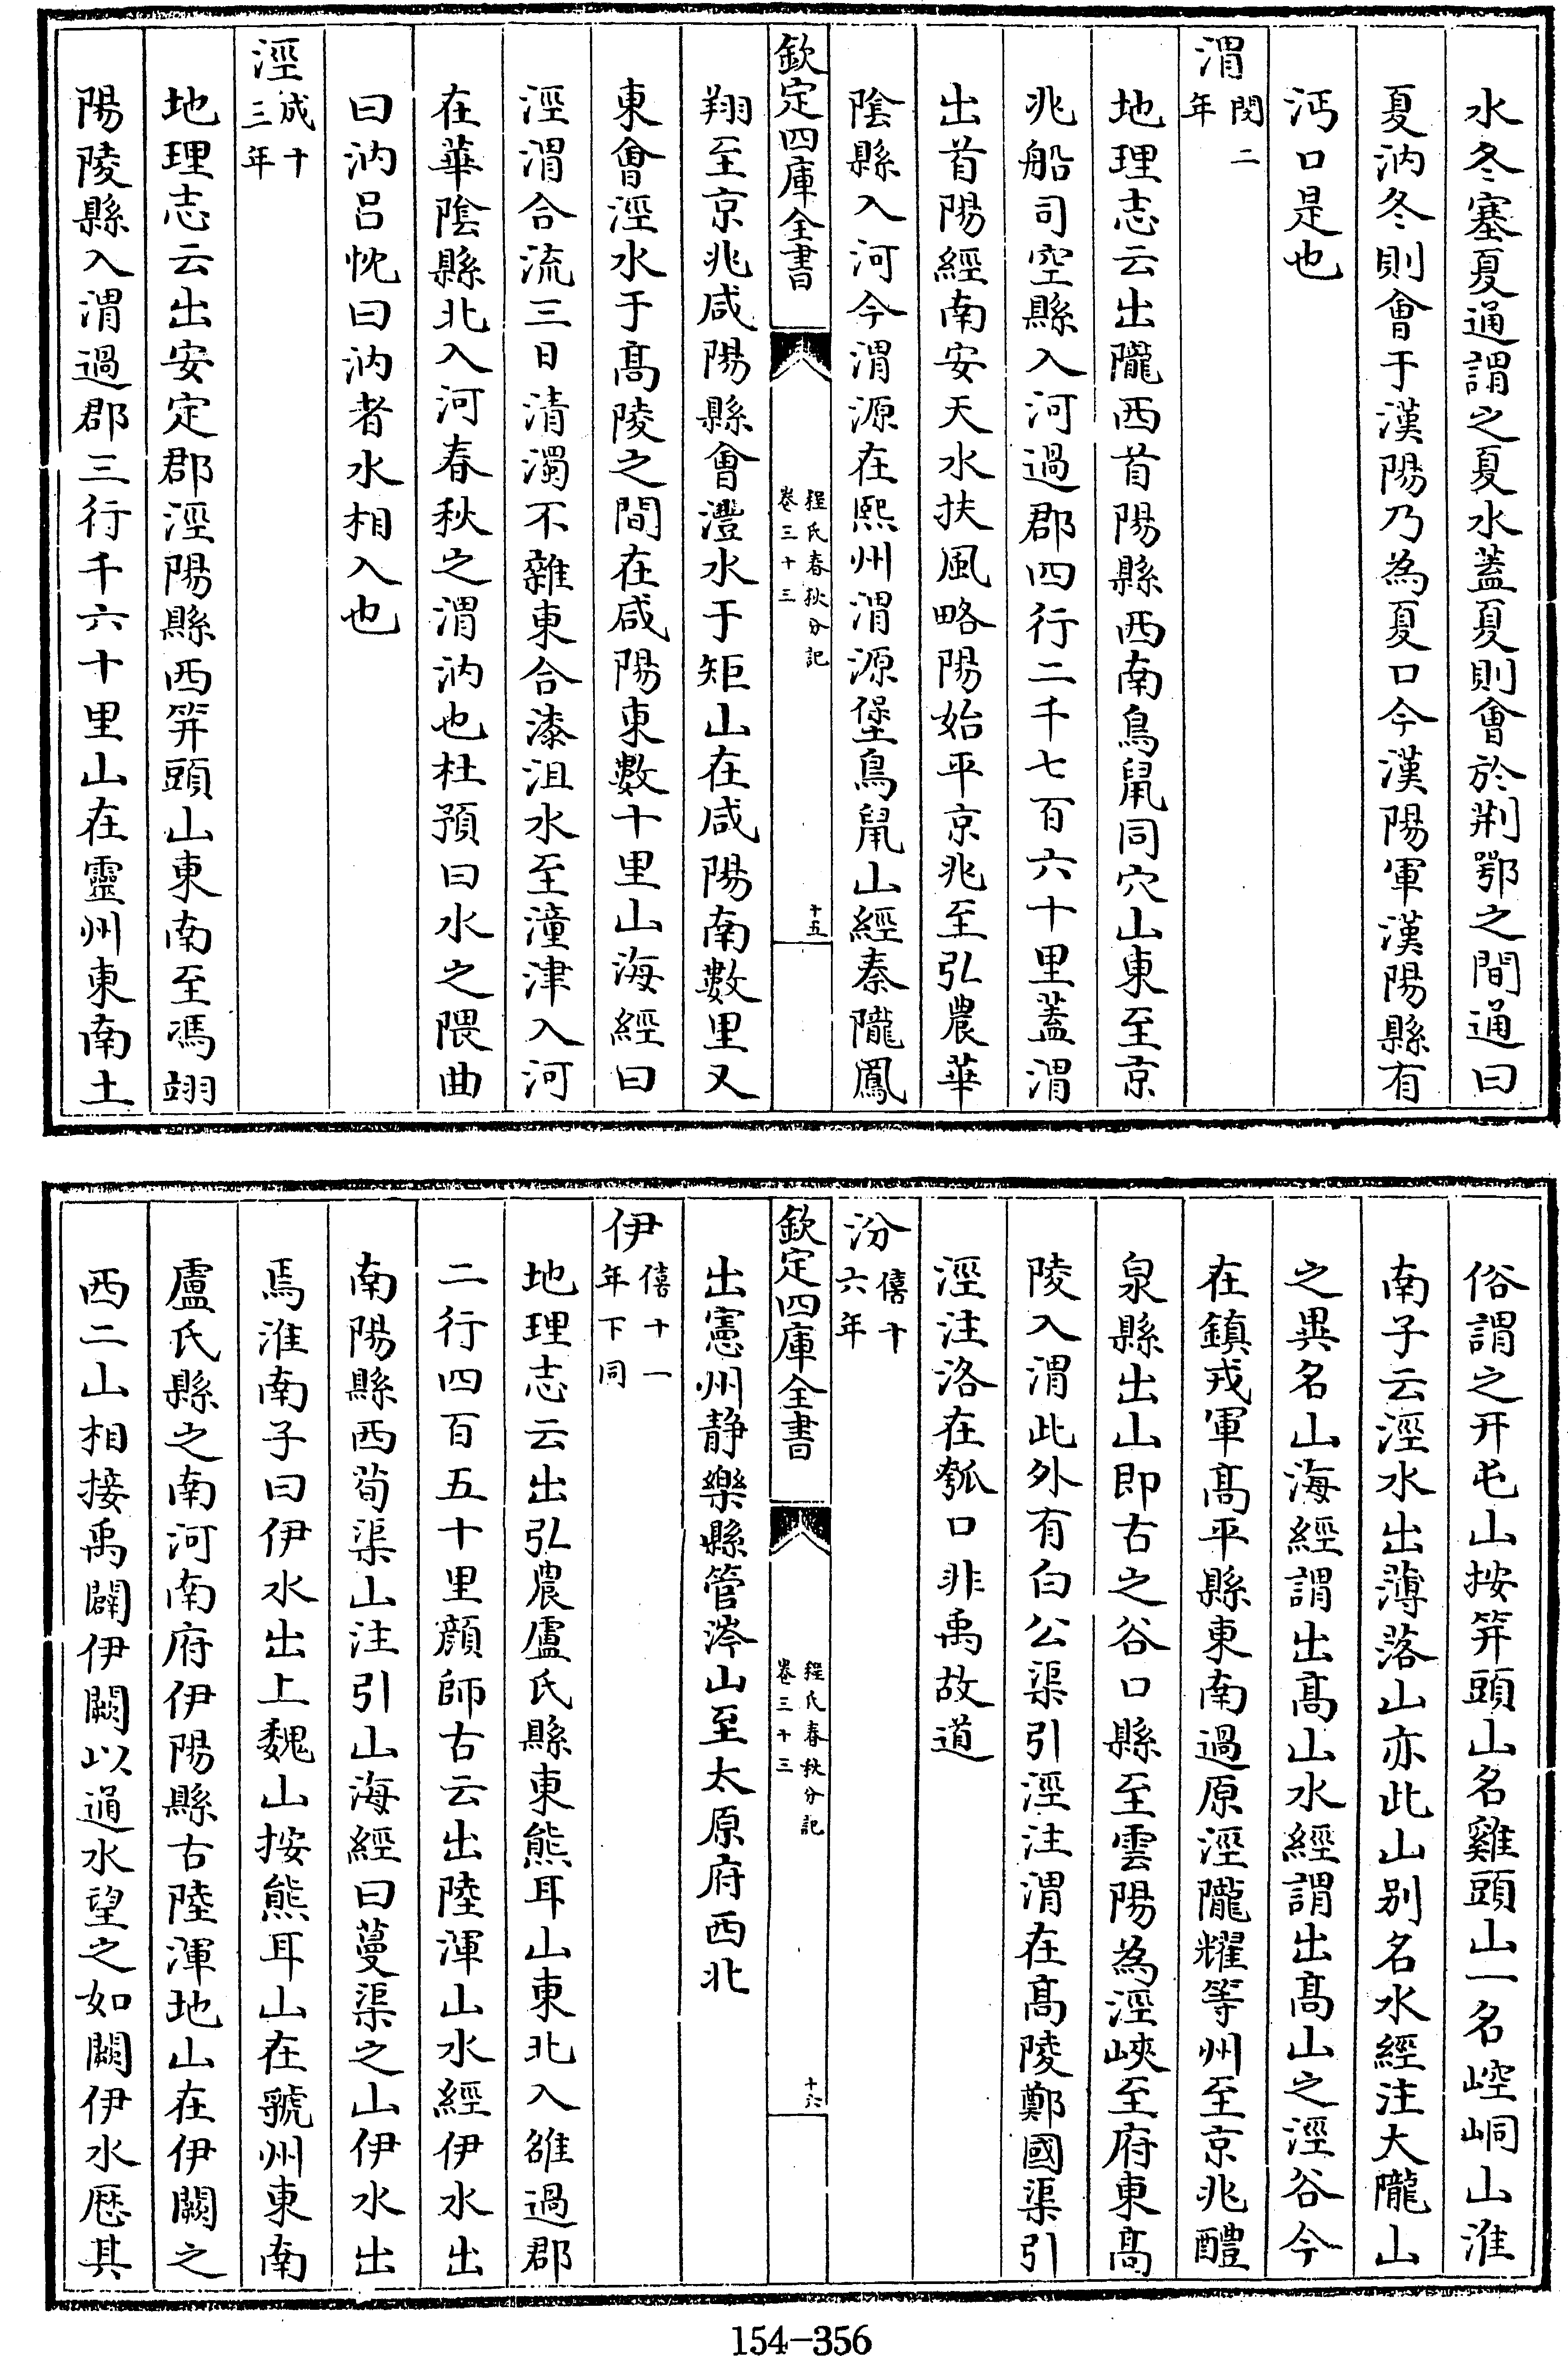 水冬塞夏通謂之夏水蓋夏則會於荆鄂之間通曰
夏汭冬則會于漢陽乃為夏口今漢陽軍漢陽縣有
沔口是也
渭閔二年
地理志云出隴西首陽縣西南鳥鼠同穴山東至京
兆船司空縣入河過郡四行二千七百六十里蓋渭
出首陽經南安天水扶風略陽始平京兆至弘農華
陰縣入河今渭源在熙州渭源堡鳥鼠山經秦隴鳳
欽定四庫全書
程氏春秋分記
卷三十三
十五
翔至京兆咸陽縣會灃水于矩山在咸陽南數里又
東會涇水于髙陵之間在咸陽東數十里山海經曰
涇渭合流三日清濁不雜東合漆沮水至潼津入河
在華陰縣北入河春秋之渭汭也杜預曰水之隈曲
曰汭吕忱曰汭者水相入也
涇成十三年
地理志云出安定郡涇陽縣西笄頭山東南至馮翊
陽陵縣入渭過郡三行千六十里山在靈州東南土
俗謂之幵屯山按笄頭山名雞頭山一名崆峒山淮
南子云涇水出薄落山亦此山别名水經注大隴山
之異名山海經謂出髙山水經謂出髙山之涇谷今
在鎮戎軍髙平縣東南過原涇隴耀等州至京兆醴
泉縣出山即古之谷口縣至雲陽為涇峽至府東髙
陵入渭此外有白公渠引涇注渭在髙陵鄭國渠引
涇注洛在瓠口非禹故道
汾僖十六年
欽定四庫全書
程氏春秋分記
卷三十三
十六
出憲州静樂縣管涔山至太原府西北
伊僖十一年下同
地理志云出弘農盧氏縣東熊耳山東北入雒過郡
二行四百五十里顔師古云出陸渾山水經伊水出
南陽縣西荀渠山注引山海經曰蔓渠之山伊水出
焉淮南子曰伊水出上魏山按熊耳山在虢州東南
盧氏縣之南河南府伊陽縣古陸渾地山在伊闕之
西二山相接禹闢伊闕以通水望之如闕伊水歴其
154-356